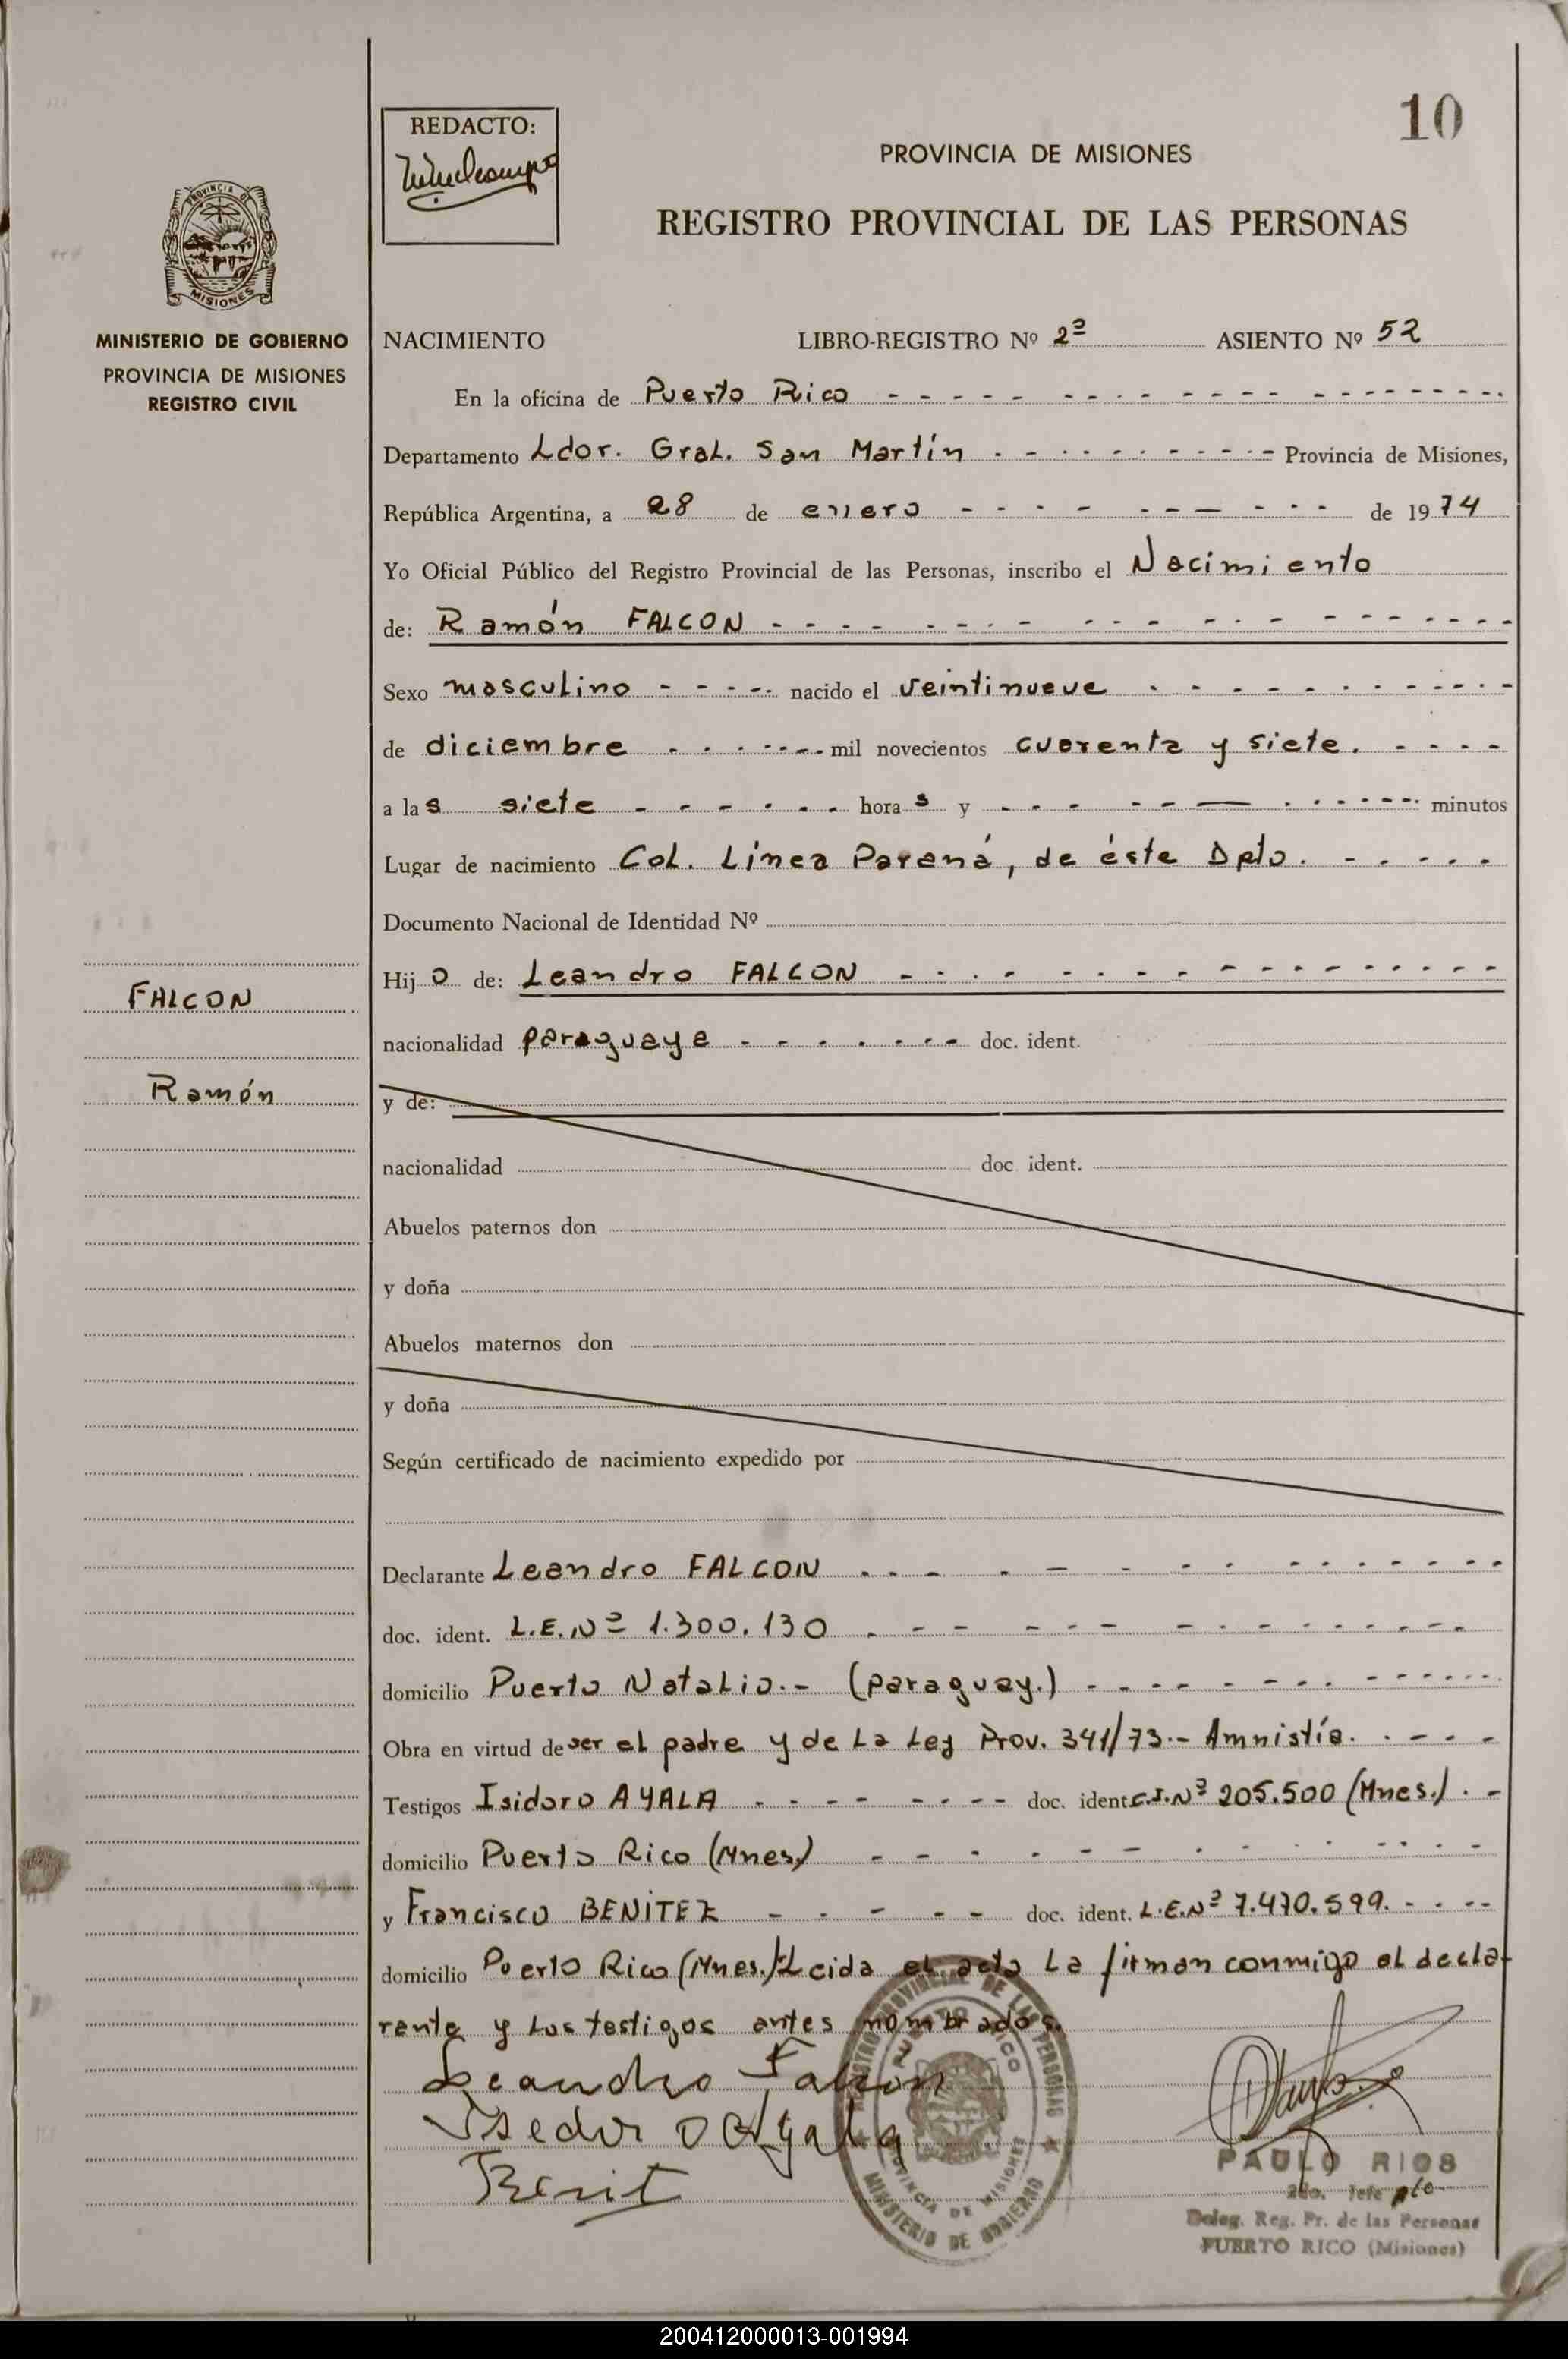 10
REDACTO:
PROVINCIA DE MISIONES
REGISTRO PROVINCIAL DE LAS PERSONAS
PROVINCIA DE
MISIONES
MINISTERIO DE GOBIERNO
PROVINCIA DE MISIONES
REGISTRO CIVIL
NACIMIENTO LIBRO-REGISTRO Nº 2º ASIENTO Nº 52
En la oficina de Puerto Rico
Departamento Ldor. Gral. San Martín Provincia de Misiones,
República Argentina, a 28 de enero de 1974
Yo Oficial Público del Registro Provincial de las Personas, inscribo el Nacimiento
de: Ramón FALCON
Sexo masculino nacido el veintinueve
de diciembre mil novecientos cuarenta y siete.
a las siete horas y minutos
Lugar de nacimiento Col. Línea Paraná, de éste Dpto.
Documento Nacional de Identidad Nº
Hijo de: Leandro FALCON
FALCON
nacionalidad paraguaya doc. ident.
Ramón
y de:
nacionalidad doc. ident.
Abuelos paternos don
y doña
Abuelos maternos don
y doña
Según certificado de nacimiento expedido por
Declarante Leandro FALCON
doc. ident. L.E. Nº 1.300.130
domicilio Puerto Natalio.- (Paraguay.)
Obra en virtud de ser el padre y de La Ley Prov. 341/73.- Amnistía.
Testigos Isidoro AYALA doc. ident. C.I. Nº 205.500 (Mnes.)
domicilio Puerto Rico (Mnes.)
y Francisco BENITEZ doc. ident. L.E. Nº 7.470.599.
domicilio Puerto Rico (Mnes.) Leida el acta La firman conmigo el decla-
rante y los testigos antes nombrados.
Leandro Falcon
Isedor o Ayala
Benit
REGISTRO PROVINCIAL DE LAS PERSONAS
PUERTO RICO
PROVINCIA DE MISIONES
MINISTERIO DE GOBIERNO
PAULO RIOS
2do. Jefe
Deleg. Reg. Pr. de las Personas
PUERTO RICO (Misiones)
200412000013-001994